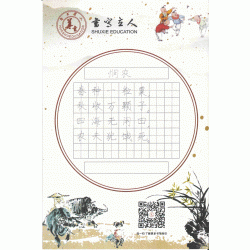 書寫立人
SHUXIE EDUCATION
悯农
春种一粒粟
秋收万颗子
四海无闲田
农夫犹饿死